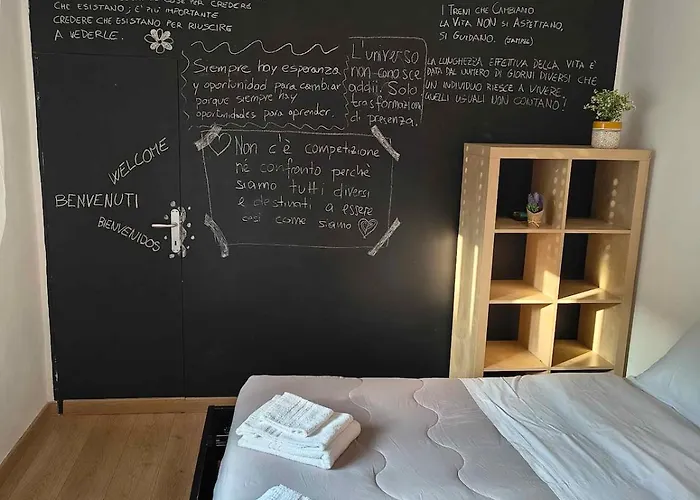 COSE PER CREDERE
CHE ESISTANO; E' PIÙ IMPORTANTE
CREDERE CHE ESISTANO PER RIUSCIRE
A VEDERLE.
I TRENI CHE CAMBIANO
LA VITA NON SI ASPETTANO,
SI GUIDANO.
LA LUNGHEZZA EFFETTIVA DELLA VITA È
DATA DAL NUMERO DI GIORNI DIVERSI CHE
UN INDIVIDUO RIESCE A VIVERE.
QUELLI USUALI NON CONTANO!
Siempre hay esperanza
y oportunidad para cambiar
porque siempre hay
oportunidades para aprender.
L'universo
non conosce
addii. Solo
trasformazioni
di presenza.
Non c'è competizione
né confronto perché
siamo tutti diversi
e destinati a essere
così come siamo
WELCOME
BENVENUTI
BIENVENIDOS